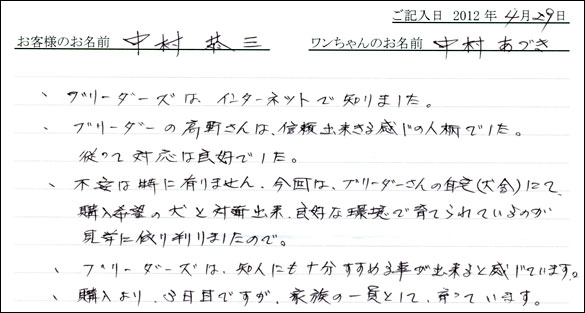 ご記入日 2012 年 4月29日
お客様のお名前 中村 恭三 ワンちゃんのお名前 中村 あづき
、ブリーダーズは、インターネットで知りました。
、ブリーダーの高野さんは、信頼出来きる感じの人柄でした。
従って対応は良好でした。
、不安は特に有りません、今回は、ブリーダーさんの自宅(犬舎)にて、
購入希望の犬と対面出来、良好な環境で育てられているのが
見学に依り判りましたので。
、ブリーダーズは、知人にも十分すすめる事が出来ると感じています。
、購入より、3日目ですが、家族の一員として、育っています。